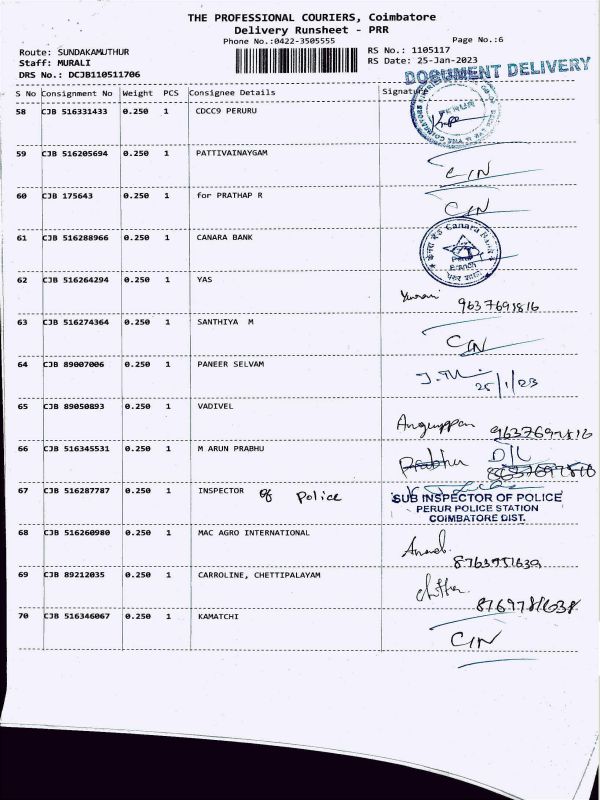 THE PROFESSIONAL COURIERS, Coimbatore
Delivery Runsheet - PRR
Phone No.:0422-3505555
Page No.:6
Route: SUNDAKAMUTHUR
RS No.: 1105117
Staff: MURALI
RS Date: 25-Jan-2023
DRS No.: DCJB110511706
DOCUMENT DELIVERY
S No Consignment No Weight PCS Consignee Details Signature
58 CJB 516331433 0.250 1 CDCC9 PERURU
59 CJB 516205694 0.250 1 PATTIVAINAYGAM CIN
60 CJB 175643 0.250 1 for PRATHAP R CIN
61 CJB 516288966 0.250 1 CANARA BANK
Canara Bank
Branch
62 CJB 516264294 0.250 1 YAS 9637691816
63 CJB 516274364 0.250 1 SANTHIYA M CIN
64 CJB 89007006 0.250 1 PANEER SELVAM 25/1/23
65 CJB 89050893 0.250 1 VADIVEL
66 CJB 516345531 0.250 1 M ARUN PRABHU Prabhu D/L
67 CJB 516287787 0.250 1 INSPECTOR of Police
SUB INSPECTOR OF POLICE
PERUR POLICE STATION
COIMBATORE DIST.
68 CJB 516260980 0.250 1 MAC AGRO INTERNATIONAL
69 CJB 89212035 0.250 1 CARROLINE, CHETTIPALAYAM
70 CJB 516346067 0.250 1 KAMATCHI CIN